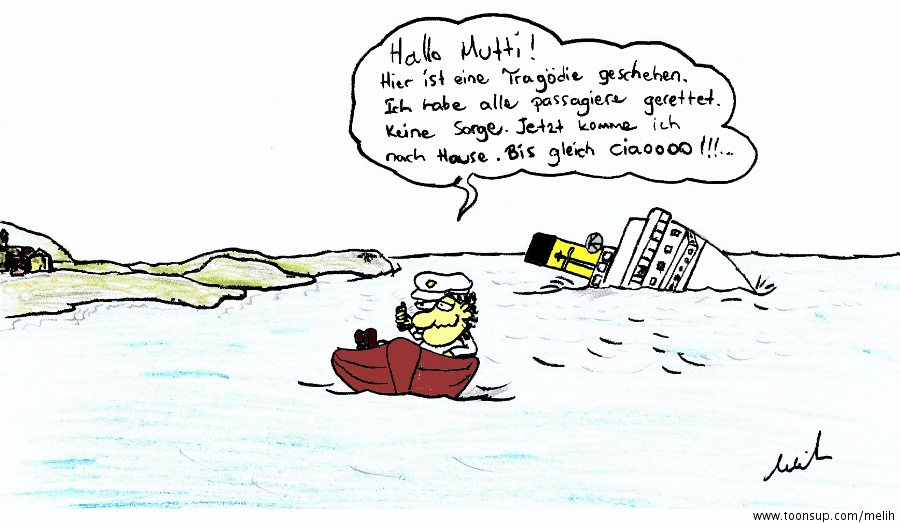 Hallo Mutti!
Hier ist eine Tragödie geschehen.
Ich habe alle passagiere gerettet.
Keine Sorge. Jetzt komme ich
nach Hause. Bis gleich ciaoooo!!!...
Melih
www.toonsup.com/melih